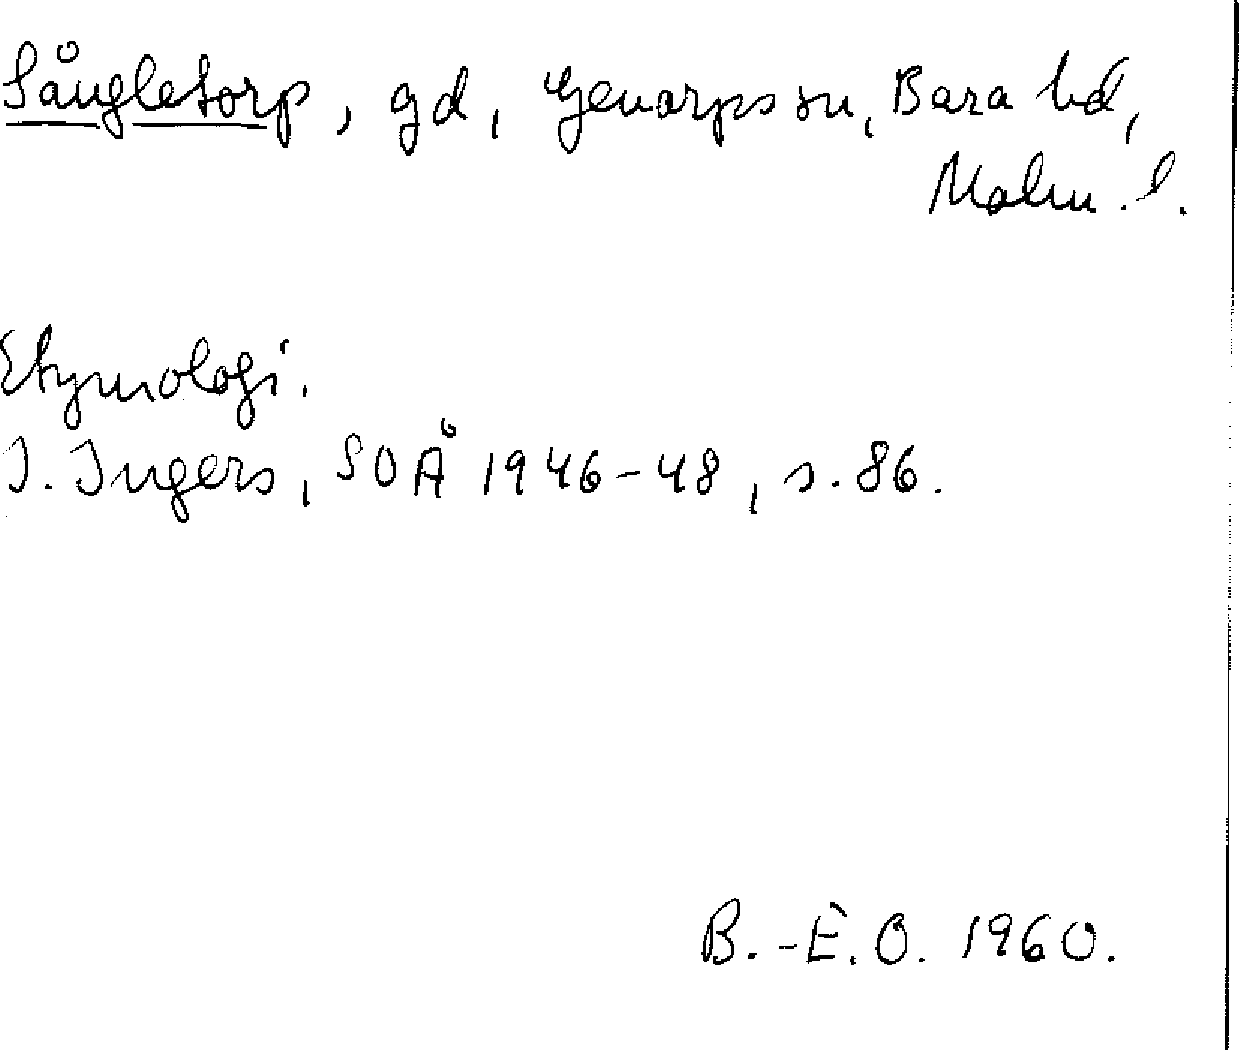 Sångletorp, gd, Genarps sn, Bara hd,
Malm. l.
Etymologi.
I. Ingers, SOÅ 1946-48, s. 86.
B.-E.O. 1960.